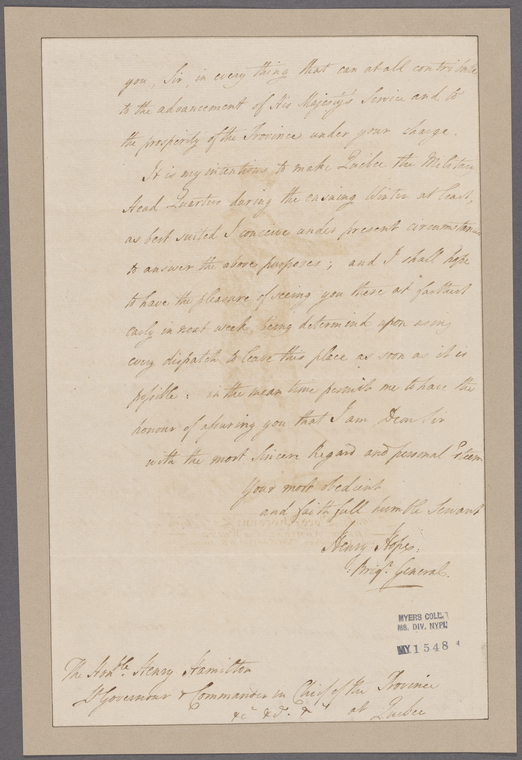 you, Sir, in every thing that can at all contribute
to the advancement of His Majesty's Service and to
the prosperity of the Province under your charge.
It is my intentions to make Quebec the Military
Head Quarters during the ensuing Winter at least,
as best suited I conceive under present circumstances
to answer the above purposes; and I shall hope
to have the pleasure of seeing you there at farthest
early in next week, being determind upon using
every dispatch to leave this place as soon as it is
possible: in the mean time permit me to have the
honour of assuring you that I am Dear Sir
with the most Sincere Regard and personal Esteem
Your most obedient
and faithfull humble Servant
Henry Hope,
Brigr. General.
MYERS COLL.
MS. DIV. NYPL
MY 1548
The Honble. Henry Hamilton
Lt Governour & Commander in Chief of the Province
&c &c. & at Quebec